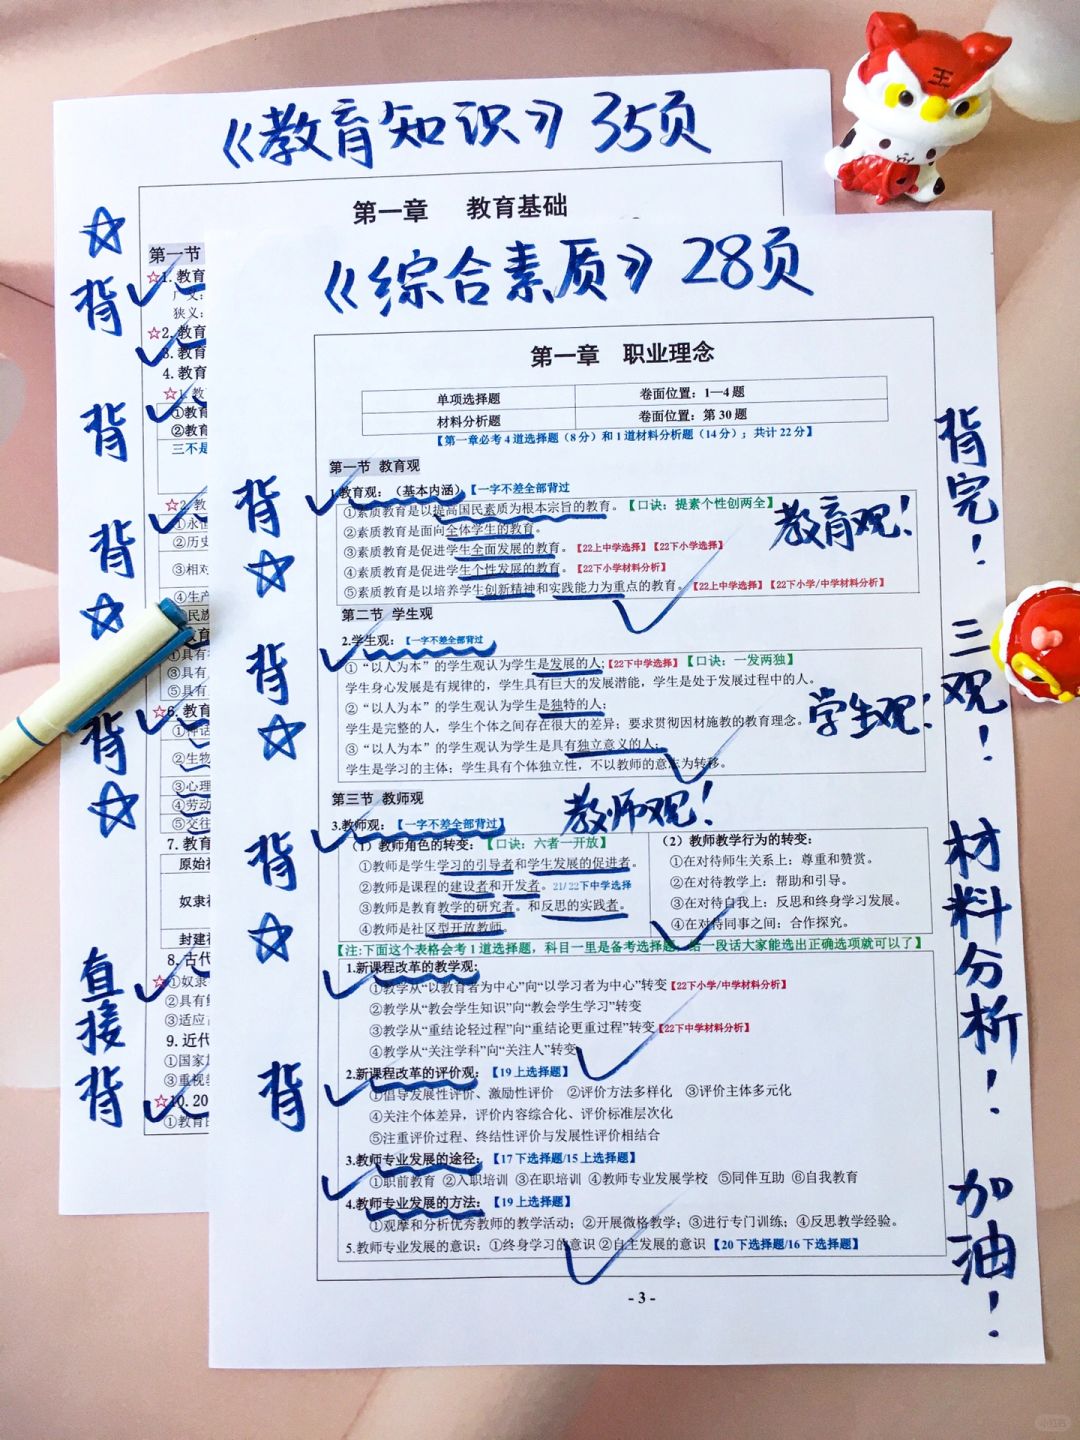 《教育知识》35页
第一章 教育基础
第一节
☆1.教育
广义:
狭义:
☆2.教育
3.教育
4.教育
①教育
②教育
三不是
②历史
③相对
④生产
☆6.教育
①神话
②生物
③心理
④劳动
⑤交往
7.教育
原始社
奴隶社
封建社
8.古代
①奴隶
②具有
③适应
9.近代
①国家
③重视
☆10.20
☆
背
背
背
☆
背
☆
直接背
王
《综合素质》28页
第一章 职业理念
单项选择题 卷面位置：1—4题
材料分析题 卷面位置：第30题
【第一章必考4道选择题（8分）和1道材料分析题（14分）；共计22分】
第一节 教育观
1.教育观：（基本内涵）【一字不差全部背过
①素质教育是以提高国民素质为根本宗旨的教育。【口诀：提素个性创两全】
②素质教育是面向全体学生的教育。
③素质教育是促进学生全面发展的教育。【22上中学选择】【22下小学选择】
④素质教育是促进学生个性发展的教育。【22下小学选择】
⑤素质教育是以培养学生创新精神和实践能力为重点的教育。【22上中学选择】【22下小学/中学材料分析】
教育观！
第二节 学生观
2.学生观：【一字不差全部背过
①“以人为本”的学生观认为学生是发展的人;【22下中学选择】【口诀：一发两独】
学生身心发展是有规律的，学生具有巨大的发展潜能，学生是处于发展过程中的人。
②“以人为本”的学生观认为学生是独特的人；
学生是完整的人，学生个体之间存在很大的差异；要求贯彻因材施教的教育理念。
③“以人为本”的学生观认为学生是具有独立意义的人；
学生是学习的主体；学生具有个体独立性，不以教师的意志为转移。
学生观！
第三节 教师观
教师观！
3.教师观：【一字不差全部背过】
（1）教师角色的转变：【口诀：六者一开放】
①教师是学生学习的引导者和学生发展的促进者。
②教师是课程的建设者和开发者。21/22下中学选择
③教师是教育教学的研究者。和反思的实践者。
④教师是社区型开放教师。
（2）教师教学行为的转变：
①在对待师生关系上：尊重和赞赏。
②在对待教学上：帮助和引导。
③在对待自我上：反思和终身学习发展。
④在对待同事之间：合作探究。
【注:下面这个表格会考1道选择题，科目一里是备考选择题，给一段话大家能选出正确选项就可以了】
1.新课程改革的教学观:
①教学从“以教育者为中心”向“以学习者为中心”转变【22下小学/中学材料分析】
②教学从“教会学生知识”向“教会学生学习”转变
③教学从“重结论轻过程”向“重结论更重过程”转变【22下中学材料分析】
④教学从“关注学科”向“关注人”转变
2.新课程改革的评价观:【19上选择题】
①倡导发展性评价、激励性评价 ②评价方法多样化 ③评价主体多元化
④关注个体差异，评价内容综合化、评价标准层次化
⑤注重评价过程、终结性评价与发展性评价相结合
3.教师专业发展的途径:【17下选择题/15上选择题】
①职前教育 ②入职培训 ③在职培训 ④教师专业发展学校 ⑤同伴互助 ⑥自我教育
4.教师专业发展的方法:【19上选择题】
①观摩和分析优秀教师的教学活动；②开展微格教学；③进行专门训练；④反思教学经验。
5.教师专业发展的意识：①终身学习的意识 ②自主发展的意识【20下选择题/16下选择题】
- 3 -
背
☆
背
☆
背
☆
背
背完！三观！材料分析！加油！
小红书